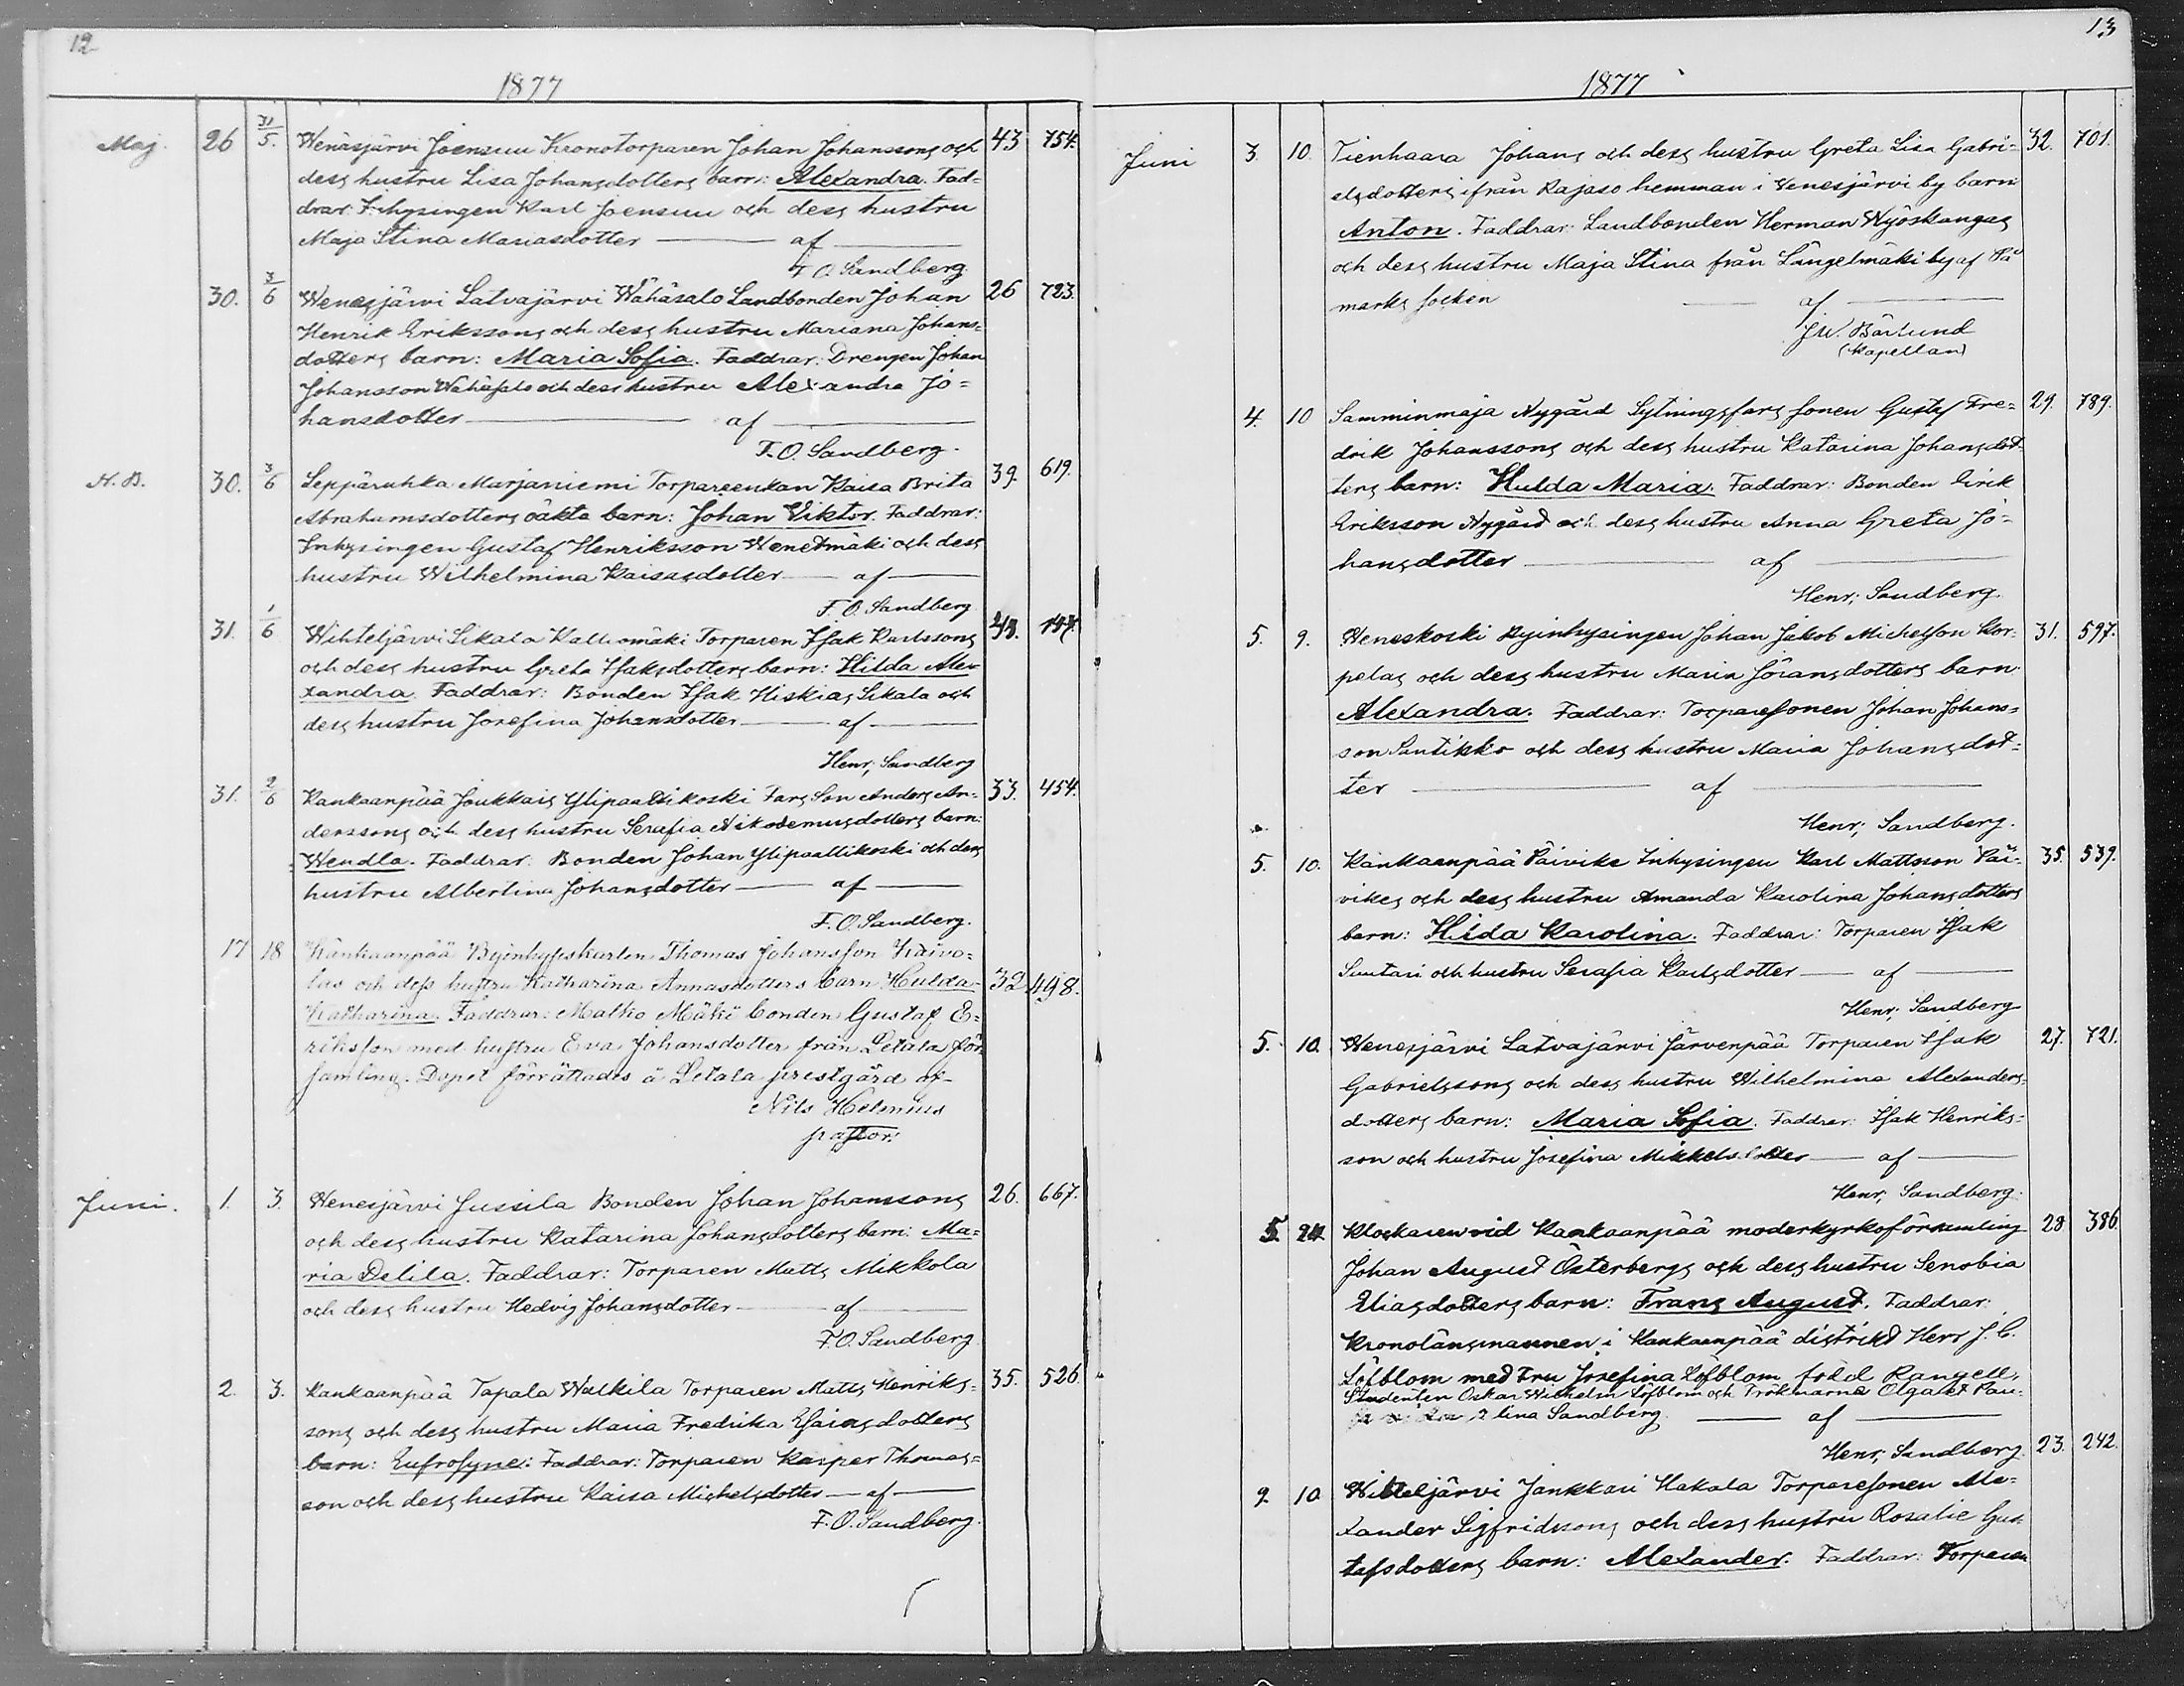 12
1877
Maj. 26 31/5. Wenäsjärvi Joensuu Kronotorparen Johan Johanssons och 43 754.
dess hustru Lisa Johansdotters barn: Alexandra. Fad-
drar: Inhysingen Karl Joensuu och dess hustru
Maja Stina Mariasdotter — af —
F. O. Sandberg.
30. 3/6 Wenesjärvi Latvajärvi Wähäsalo Landbonden Johan 26 723.
Henrik Erikssons och dess hustru Mariana Johans=
dotters barn: Maria Sofia. Faddrar: Drengen Johan
Johansson Wähäsalo och dess hustru Alexandra Jo=
hansdotter — af —
F. O. Sandberg.
H. B. 30. 3/6 Seppäruhka Marjaniemi Torpareenkan Kaisa Brita 39. 619.
Abrahamsdotters oäkta barn: Johan Viktor. Faddrar:
Inhysingen Gustaf Henriksson Wenetmäki och dess
hustru Wilhelmina Kaisasdotter — af —
F. O. Sandberg
31. 1/6 Wihteljärvi Sikala Kalliomäki Torparen Isak Karlssons 147.
och dess hustru Greta Isaksdotters barn: Hilda Ale-
xandra. Faddrar: Bonden Isak Hiskias Sikala och
dess hustru Josefina Johansdotter — af —
Henr; Sandberg
31. 2/6 Kankaanpää Joukkais Ylipaattikoski Fars Son Anders An- 33. 454.
derssons och dess hustru Serafia Nikodemusdotters barn:
Wendla. Faddrar: Bonden Johan Ylipaattikoski och dess
hustru Albertina Johansdotter — af —
F. O. Sandberg.
17 18 Kankaanpää Byinhyseskarlen Thomas Johansson Kaivo=
las och dess hustru Katharina Annasdotters barn Hulda 32 498.
Katharina. Faddrar: Matko Mäki bonden Gustaf E=
riksson med hustru Eva Johansdotter från Letala för
samling. Dopet förrättades å Letala prestgård af
Nils Helenius
pastor.
Juni. 1. 3. Wenesjärvi Jussila Bonden Johan Johanssons 26. 667.
och dess hustru Katarina Johansdotters barn: Ma=
ria Delila. Faddrar: Torparen Matts Mikkola
och dess hustru Hedvig Johansdotter — af —
F. O. Sandberg
2. 3. Kankaanpää Tapala Walkila Torparen Matts Henriks= 35. 526
sons och dess hustru Maria Fredrika Esaiasdotters
barn: Eufrosyne: Faddrar: Torparen Kasper Thomas=
son och dess hustru Kaisa Michelsdotter — af —
F. O. Sandberg.
13
1877
Juni 3. 10. Tienhaara Johans och dess hustru Greta Lisa Gabri= 32. 701.
elsdotters ifrån Rajaso hemman i Venesjärvi by barn
Anton. Faddrar: Landbonden Herman Nyöskangas
och dess hustru Maja Stina från Längelmäki by af På
marks socken — af —
J W. Bärlund
(Kapellan)
4. 10 Samminmaja Nygård Sytningsfars sonen Gustaf Fre= 29. 789.
drik Johanssons och dess hustru Katarina Johansdot
ters barn: Hulda Maria. Faddrar: Bonden Erik
Eriksson Nygård och dess hustru Anna Greta Jo-
hansdotter — af —
Henr; Sandberg.
5. 9. Weneskoski Byinhysingen Johan Jakob Michelson Kor- 31. 597.
pelas och dess hustru Maria Göransdotters barn
Alexandra. Faddrar: Torparesonen Johan Johans=
son Santikko och dess hustru Maria Johansdot=
ter — af —
Henr; Sandberg.
5. 10. Kankaanpää Päivike Inhysingen Karl Mattsson Päi- 35. 539.
vikes och dess hustru Amanda Karolina Johansdotters
barn: Hilda Karolina. Faddrar: Torparen Isak
Suutari och hustru Serafia Karlsdotter — af —
Henr; Sandberg
5. 10. Wenesjärvi Latvajärvi Järvenpää Torparen Isak 27. 721.
Gabrielssons och dess hustru Wilhelmina Alexanders=
dotters barn: Maria Sofia. Faddrar: Isak Henriks=
son och hustru Josefina Mikkelsdotter — af —
Henr; Sandberg.
5. 24. Klockaren vid Kankaanpää moderkyrkoförsamling 28 386.
Johan August Österbergs och dess hustru Senobia
Eliasdotters barn: Frans August. Faddrar:
Kronolänsmannen i Kankaanpää distrikt Herr J. C.
Löfblom med Fru Josefina Löfblom född Rangell,
Studenten Oskar Wilhelm Löfblom och Fröknarna Olga et Pau-
lina Sandberg — af —
Henr; Sandberg.
9. 10 Wihteljärvi Jankkari Hakala Torparesonen Ale- 23. 242.
xander Sigfridssons och dess hustru Rosalie Gus-
tafsdotters barn: Alexander. Faddrar: Torparen